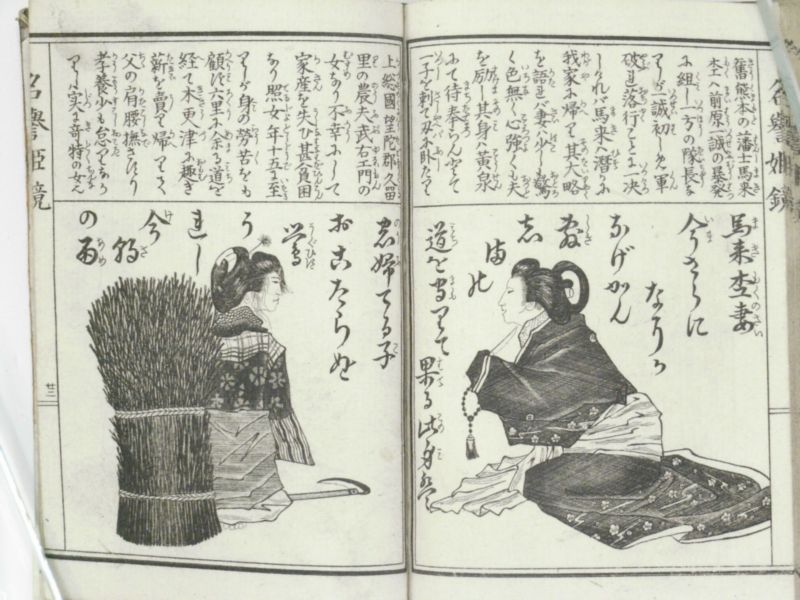 名譽姫鏡
舊熊本の藩士馬来
杢ハ前原一誠の暴発
に組し一方の隊長な
りしが一誠初しく軍
破れ落行ことに一决
しけれバ馬来ハ潜かに
我家に帰て其大略
を語れバ妻ハ少しも驚
く色無く心強くも夫
を励し其身ハ黄泉
にて待奉らんとて
一子を刺て刃に卧たり
馬来杢妻
まきもくのさい
今さらに
なにか
なげかん
敷
志
満の
道を守りて
果る此身は
上総國望陀郡久留
里の農夫武右エ門の
女なり不幸にして
家産を失ひ甚貧困
なり照女年十五に至
りしが身の労苦をも
顧ず六里に余る道を
経て木更津に趣き
薪を賣て帰りてハ
父の肩腰撫さすり
孝養少も怠りなか
りしハ実に奇特の女なり
忠婦てる子
おこたらぬ
鶯
うれし
今朝
の雨
名譽姫鏡
廿二